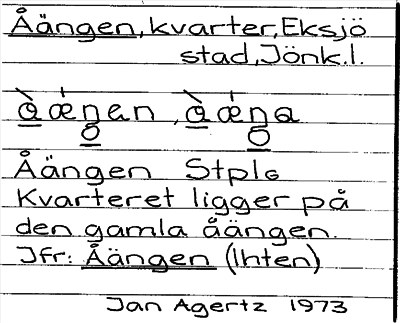 Åängen, kvarter, Eksjö
stad, Jönk.l.
Åängen Stpl
Kvarteret ligger på
den gamla åängen.
Jfr: Åängen (Ihten)
Jan Agertz 1973